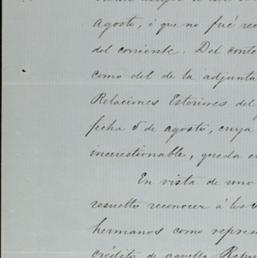 Agosto, ó que no fué re
del corriente. Del cont
como del de la adjunta
Relaciones Esteriores del
fecha 5 de agosto, cuya
incuestionable, queda e
En vista de uno
resuelto reconocer á los
hermanos como repres
crédito de aquella Repu